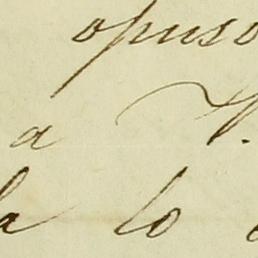 opuso
a V.
la lo